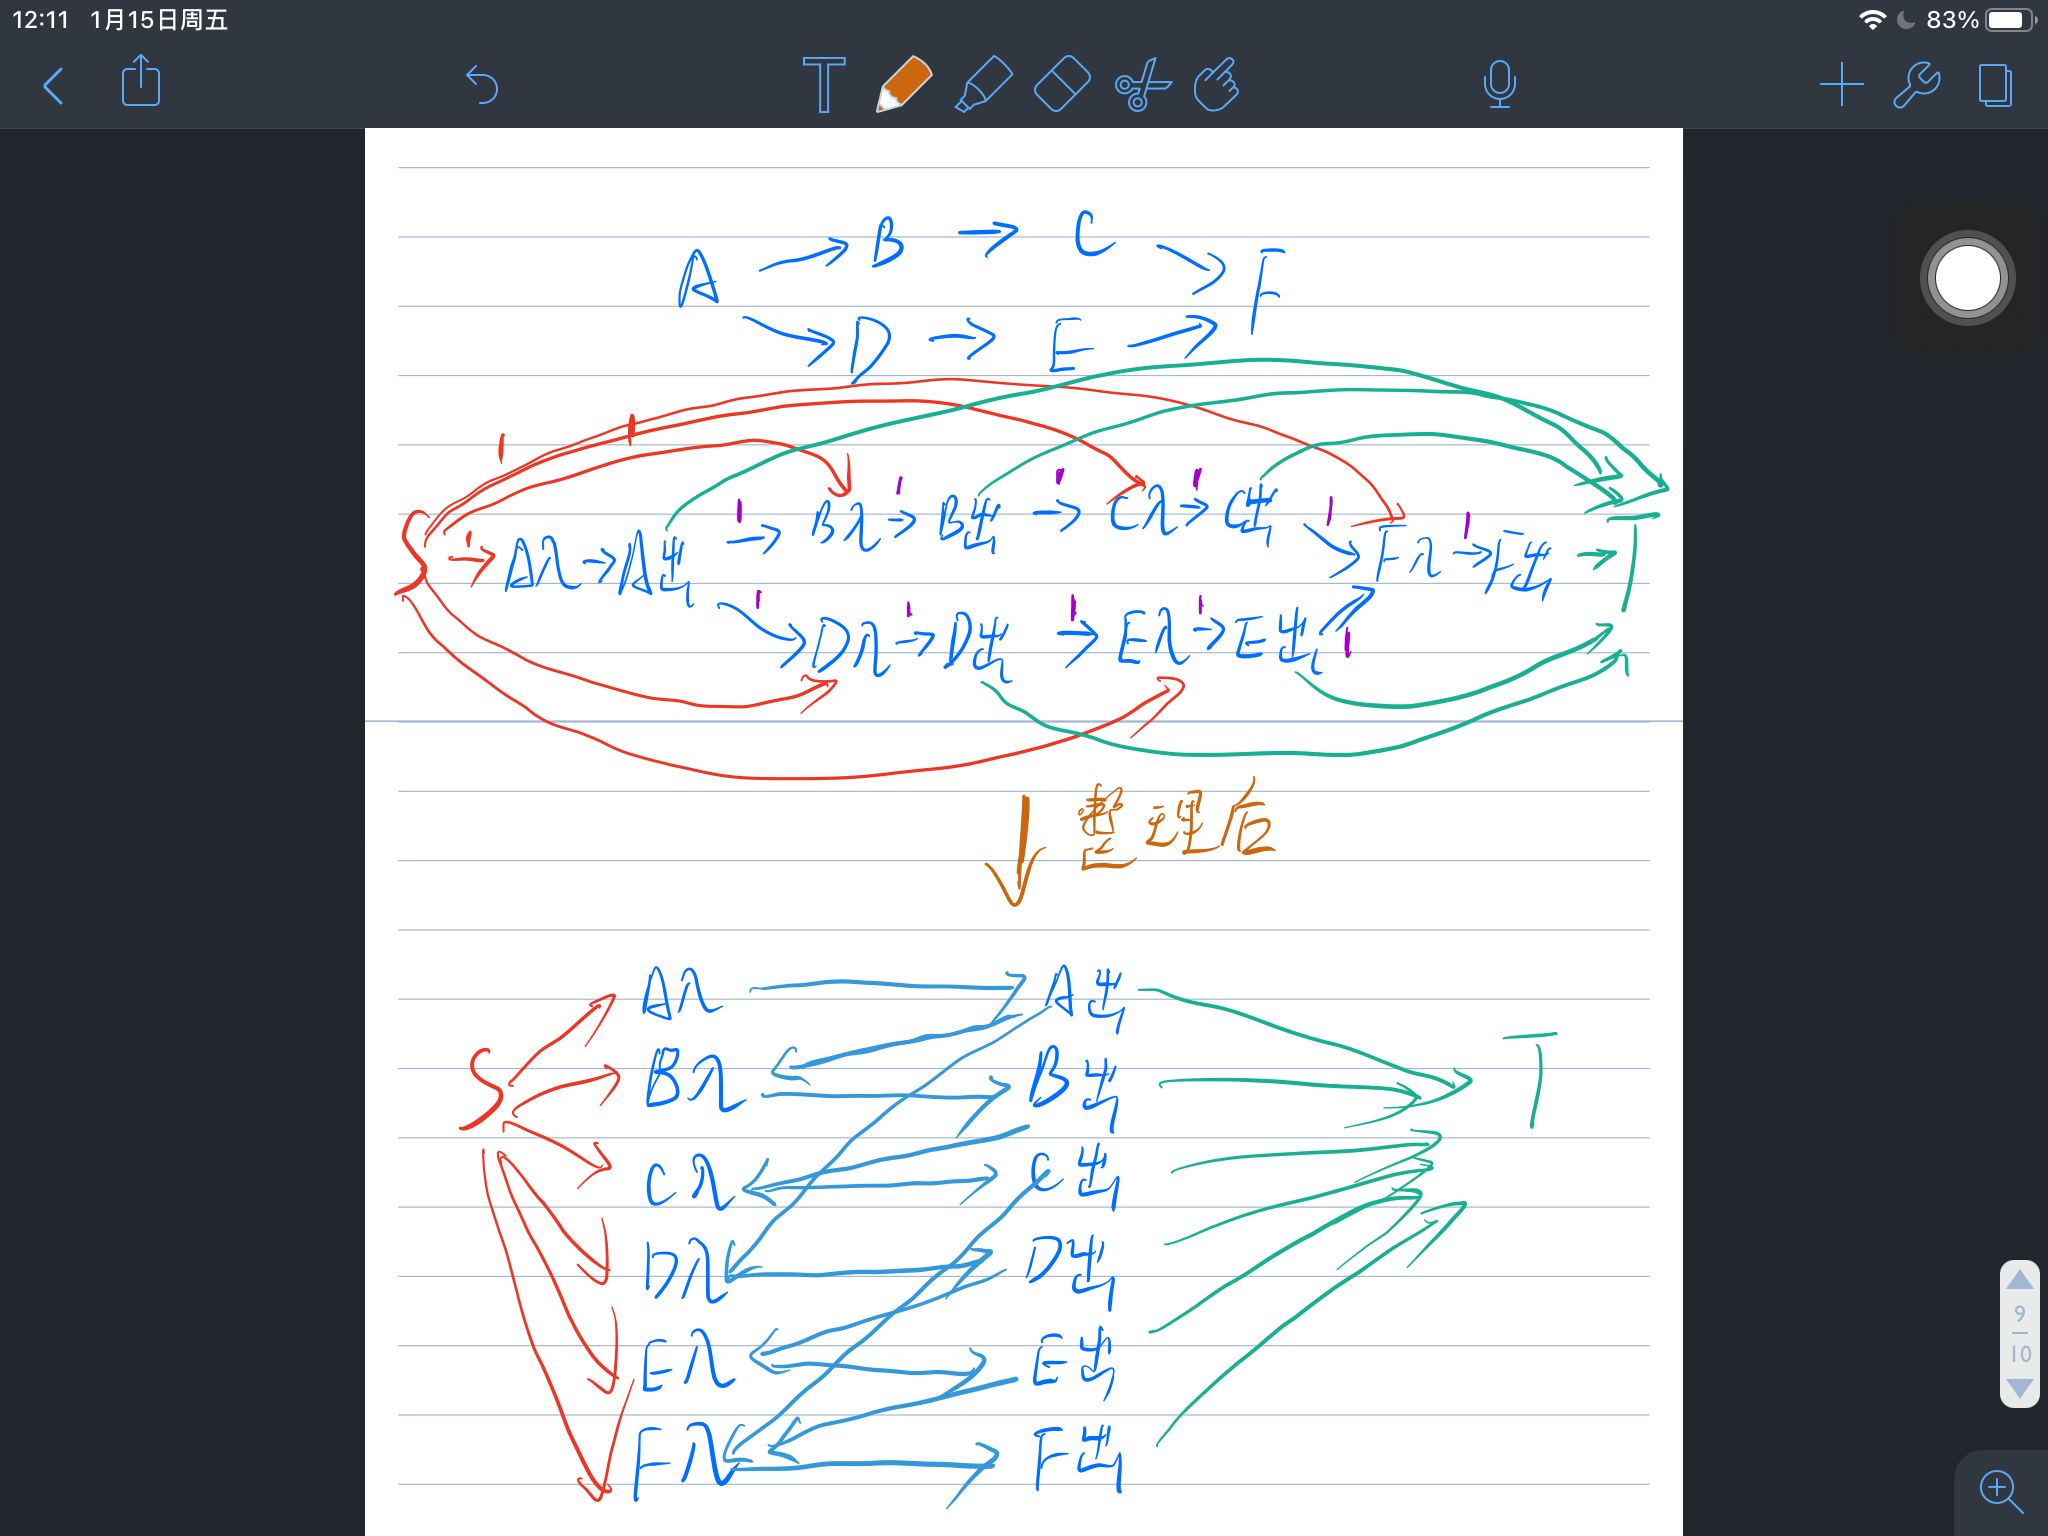 12:11 1月15日周五 83%
T
A → B → C → F
A → D → E → F
1 1
1 1 1 1 1 1
S → A入 → A出 → B入 → B出 → C入 → C出 → F入 → F出 → T
1 1 1 1 1 1
D入 → D出 → E入 → E出
↓ 整理后
A入 A出
S B入 B出 T
C入 C出
D入 D出
E入 E出
F入 F出
9
10